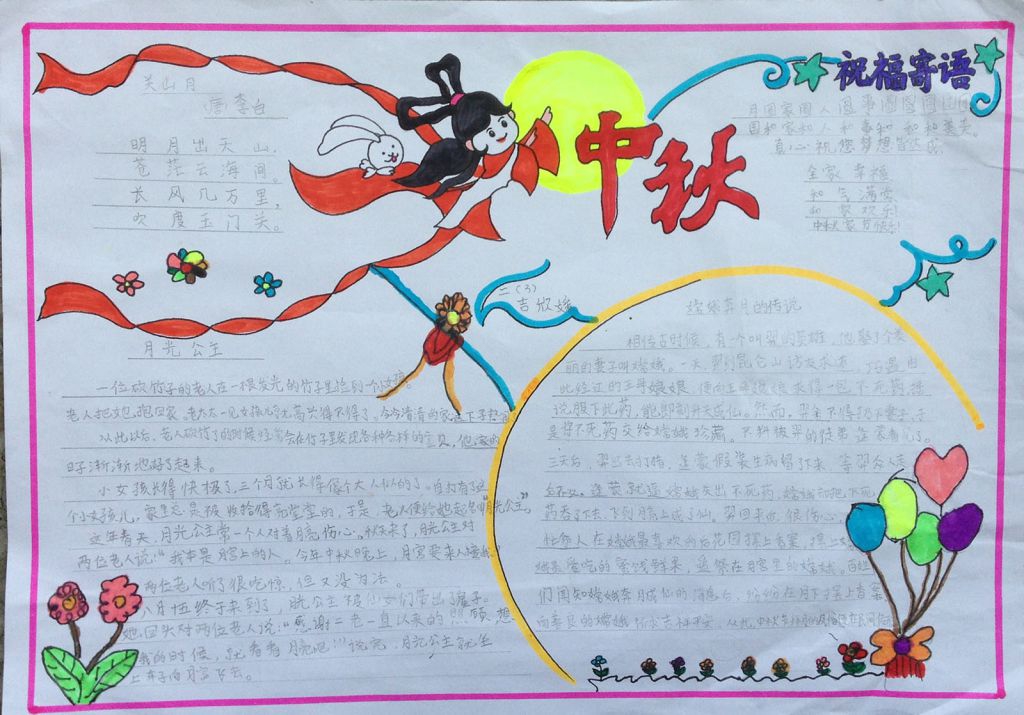 关山月
唐 李白
明月出天山，
苍茫云海间。
长风几万里，
吹度玉门关。
中秋
祝福寄语
月圆家圆人圆事圆圆圆
国和家和人和事和和和美美
真心祝您梦想皆达成
全家幸福
和气满堂
和家欢乐
中秋
二（3）
吉欣
月光公主
一位砍竹子的老人在一根发光的竹子里捡到个女孩
老人把她抱回家
从此以后，老人砍竹子的时候
日子渐渐地好了起来。
小女孩长得快极了，三个月就长得像个大人似的了。自打有了这
个小女孩儿，家里总是被收拾得亮堂堂的，于是老人便给她起名叫“月光公主”。
这年春天，月光公主常一个人对着月亮伤心。秋天来了，月光公主对
两位老人说：“我本是月宫上的人。今年中秋晚上，月宫要来人接我
两位老人听了很吃惊，但又没办法。
八月十五终于来到了，月光公主被仙女们带出了屋子。
她回头对两位老人说：“感谢二老一直以来的照顾，想
我的时候，就看看月亮吧！”说完，月光公主就坐
上车子向月宫飞去。
嫦娥奔月的传说
相传古时候，有一个叫羿的英雄，他娶了个美
丽的妻子叫嫦娥。一天，羿到昆仑山访友求道，巧遇由
此经过的王母娘娘，便向王母娘娘求得一包不死药。据
说服下此药，能即刻升天成仙。然而，羿舍不得扔下妻子，于
是将不死药交给嫦娥珍藏。不料被羿的徒弟逢蒙看见了。
三天后，羿出去打猎，逢蒙假装生病留了下来，等羿众人走
逢蒙就逼嫦娥交出不死药，嫦娥
药吞了下去，飞到月亮上成了仙。羿回来后，很伤心，
在嫦娥最喜欢的后花园摆上香案，摆上
爱吃的蜜饯鲜果，遥祭在月宫里的嫦娥。百姓
们闻知嫦娥奔月成仙的消息后，纷纷在月下摆上香案
向善良的嫦娥祈求吉祥平安，从此，中秋节拜月的风俗在民间传